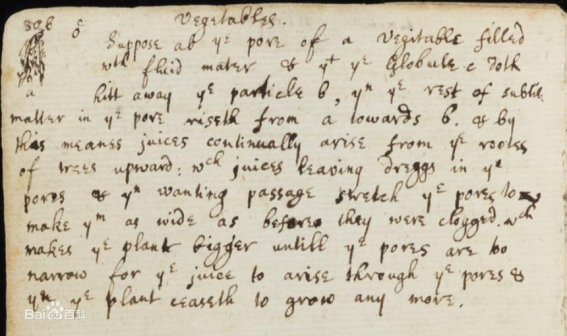 Vegetables.
Suppose ab yᵉ pore of a Vegitable filled
wᵗʰ fluid mater & yᵗ yᵉ Globule c doth
hitt away yᵉ particle b, yⁿ yᵉ rest of subtil
matter in yᵉ pore riseth from a towards b. & by
this meanes juices continually arise from yᵉ rootes
of trees upward: wᶜʰ juices leaving dreggs in yᵉ
pores & yⁿ wanting passage stretch yᵉ pores to
make yᵐ as wide as before they were clogged. wᶜʰ
makes yᵉ plant bigger untill yᵉ pores are too
narrow for yᵉ juice to arise through yᵉ pores &
yⁿ yᵉ plant ceaseth to grow any more.
Bai百科